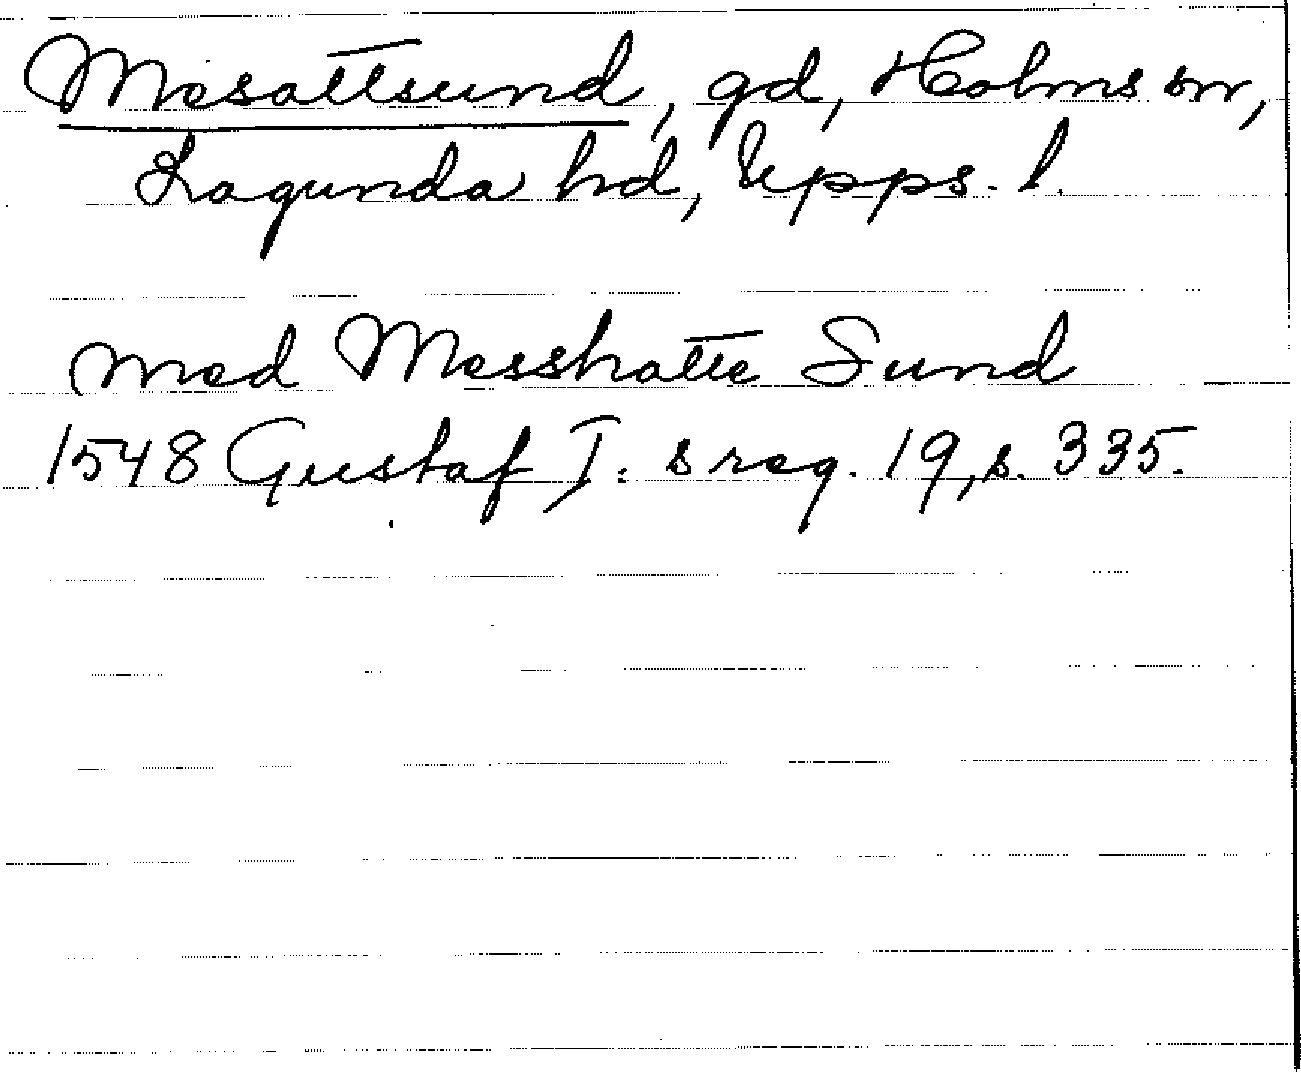 Mesattsund, gd, Holms sn,
Lagunda hd, Upps. l.
med Messhatte Sund
1548 Gustaf I: s reg. 19, s. 335.